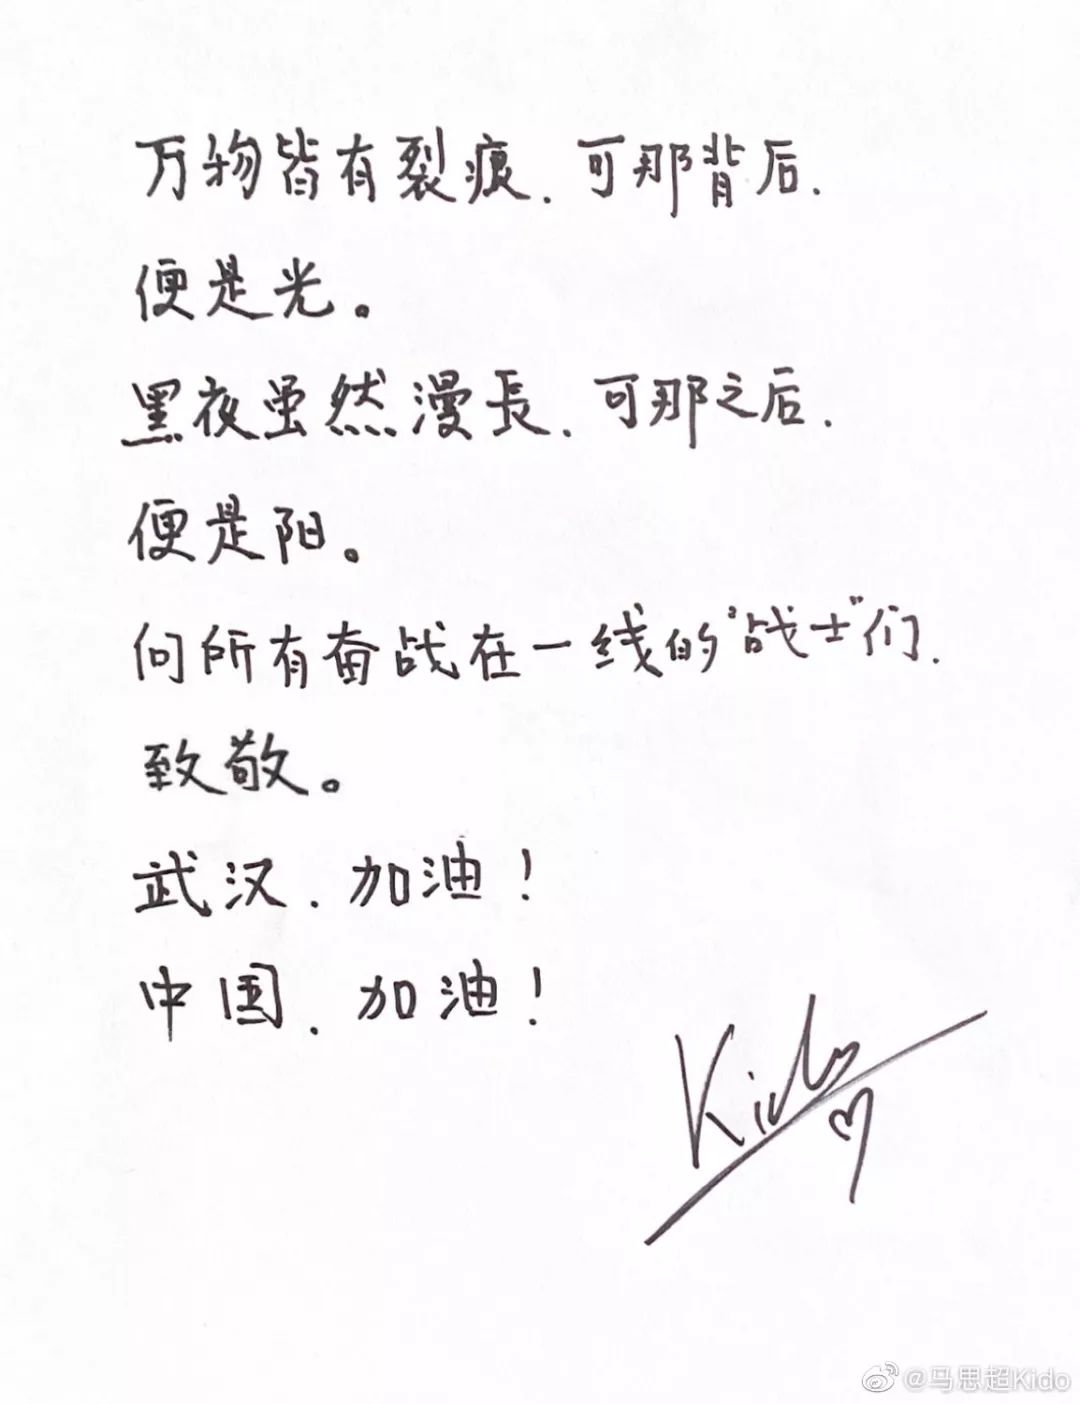 万物皆有裂痕，可那背后，
便是光。
黑夜虽然漫長，可那之后，
便是阳。
向所有奋战在一线的“战士”们，
致敬。
武汉，加油！
中国，加油！
Kido
@马思超Kido